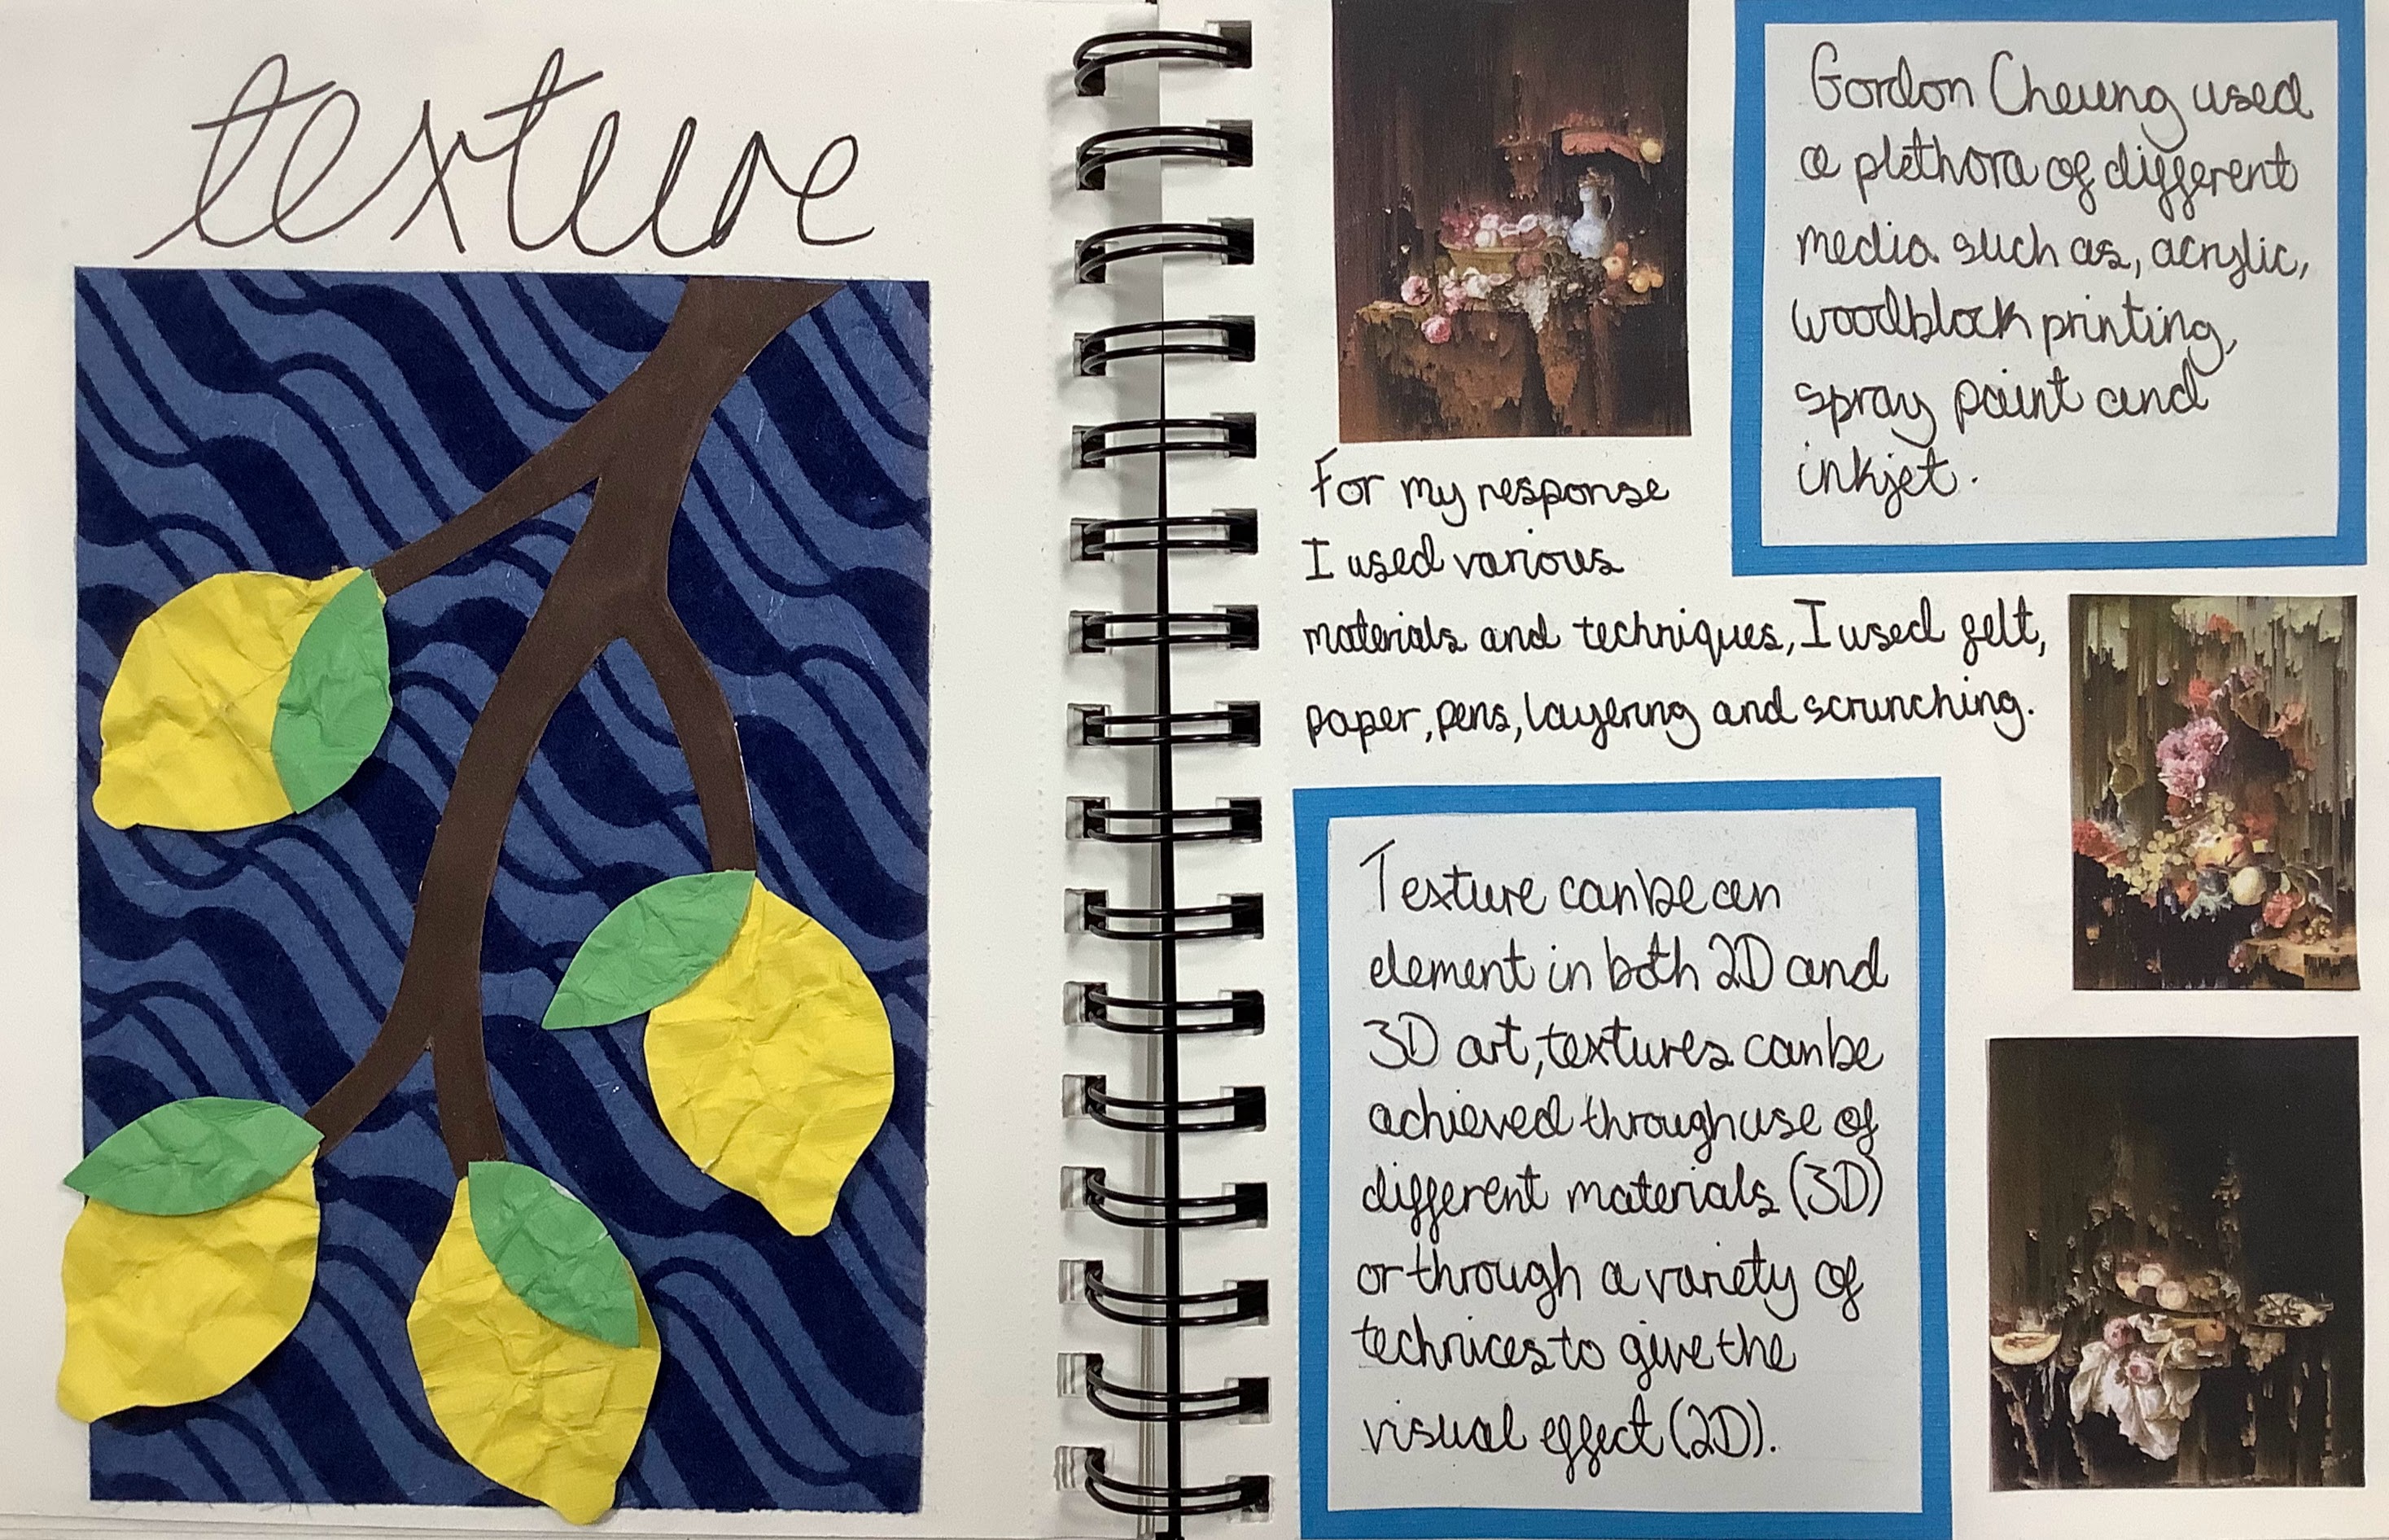 texture
Gordon Cheung used
a plethora of different
media such as, acrylic,
woodblock printing,
spray paint and
inkjet.
For my response
I used various
materials and techniques, I used felt,
paper, pens, layering and scrunching.
Texture can be an
element in both 2D and
3D art, textures can be
achieved through use of
different materials (3D)
or through a variety of
technices to give the
visual effect (2D).